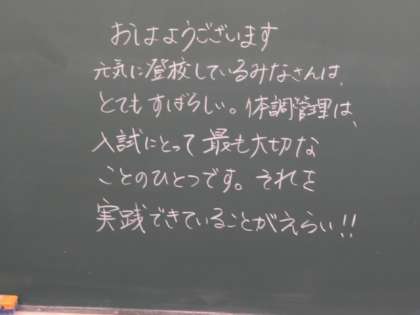 おはようございます
元気に登校しているみなさんは、
とてもすばらしい。体調管理は、
入試にとって最も大切な
ことのひとつです。それを
実践できていることがえらい!!